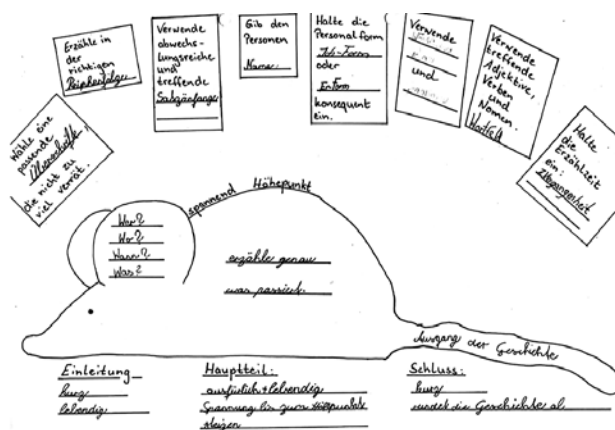 Wähle eine
passende
Überschrift,
die nicht zu
viel verrät.
Erzähle in
der
richtigen
Reihenfolge
Verwende
abwechs-
lungsreiche
und
treffende
Satzanfänge
Gib den
Personen
Namen
Halte die
Personalform
Ich-Form
oder
Er Form
konsequent
ein.
Verwende
und
Verwende
treffende
Adjektive,
Verben
und
Nomen.
Halte
die
Erzählzeit
ein:
Vergangenheit
spannend Höhepunkt
Wer?
Wo?
Wann?
Was?
erzähle genau
was passiert
Ausgang der Geschichte
Einleitung
kurz
lebendig
Hauptteil:
ausfürlich + lebendig
Spannung bis zum Höhepunkt
steigen
Schluss:
kurz
rundet die Geschichte ab